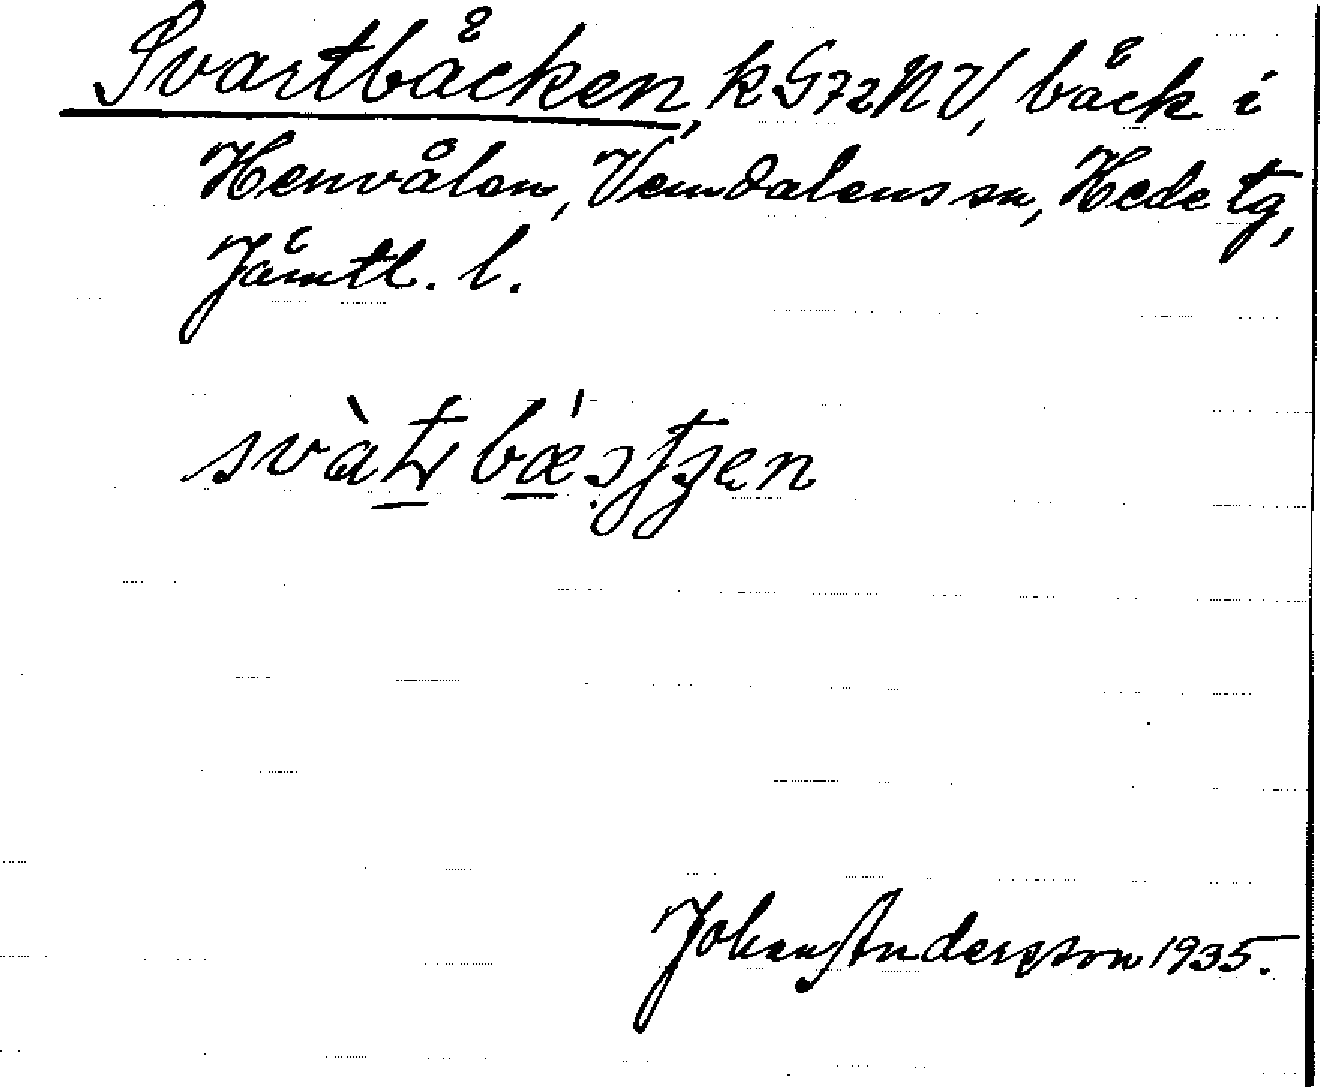 Svartbäcken, k G72NV, bäck i
Henvålen, Vemdalens sn, Hede tg,
Jämtl. l.
Johan Andersson 1935.